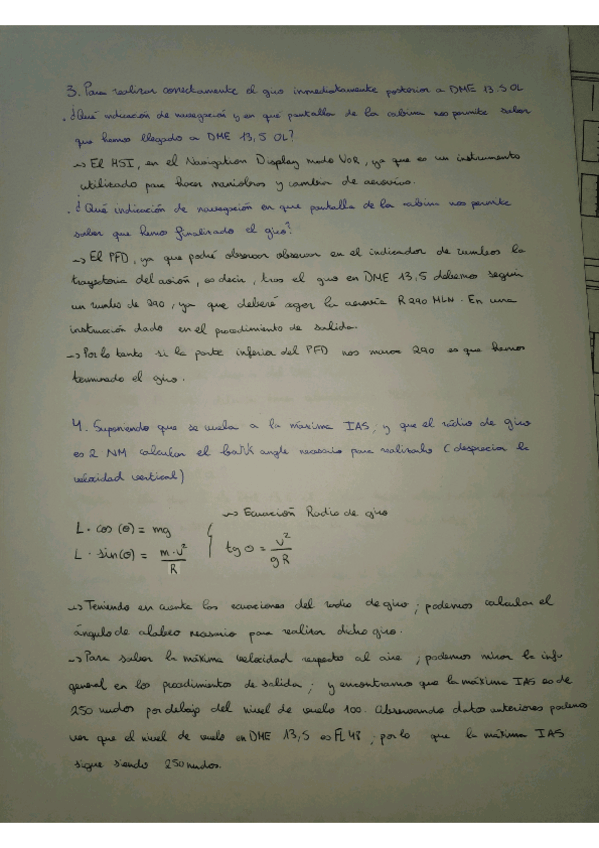 3. Para realizar correctamente el giro inmediatamente posterior a DME 13.5 OL
· ¿Qué indicación de navegación y en que pantalla de la cabina nos permite saber
que hemos llegado a DME 13,5 OL?
→ El HSI, en el Navigation Display modo VOR, ya que es un instrumento
utilizado para hacer maniobras y cambiar de aerovías.
· ¿Qué indicación de navegación en que pantalla de la cabina nos permite
saber que hemos finalizado el giro?
→ El PFD, ya que podré observar observar en el indicador de rumbos la
trayectoria del avión, es decir, tras el giro en DME 13,5 debemos seguir
un rumbo de 290, ya que deberé coger la aerovía R290 MLN. En una
instrucción dado en el procedimiento de salida.
→ Por lo tanto si la parte inferior del PFD nos marca 290 es que hemos
terminado el giro.
4. Suponiendo que se vuela a la máxima IAS, y que el radio de giro
es 2 NM calcular el bank angle necesario para realizarlo (despreciar la
velocidad vertical)
→ Ecuación Radio de giro
L · cos (θ) = mg
L · sin(θ) = m·v²/R
tg θ = v²/gR
→ Teniendo en cuenta las ecuaciones del radio de giro; podemos calcular el
ángulo de alabeo necesario para realizar dicho giro.
→ Para saber la máxima velocidad respecto al aire; podemos mirar la info
general en los procedimientos de salida; y encontramos que la máxima IAS es de
250 nudos por debajo del nivel de vuelo 100. Observando datos anteriores podemos
ver que el nivel de vuelo en DME 13,5 es FL48; por lo que la máxima IAS
sigue siendo 250 nudos.